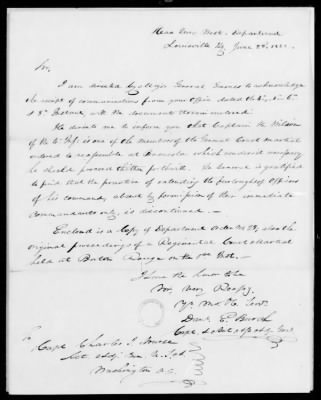 Head Qrs West. Department
Louisville Ky June 28.
Sir,
I am directed by Major General Gaines to acknowledge
the receipt of communications from your Office dated the
& 8th Instant, with the document therein enclosed
He directs me to inform you that Captain Wilson
of the 4th Inf. is one of the members of the General Court Martial
ordered to reassemble at Pensacola which renders it necessary
he should proceed thither forthwith. The General is gratified
to find that the practice of extending the furloughs of Officers
of his command, absent by permission of their immediate
commandants only, is discontinued.
Enclosed is a Copy of Department order No 28, also the
original proceedings of a Regimental Court Martial
held at Baton Rouge on the 1st Inst.
I have the honor to be
Sir, Very Respy
Yr Mo Ob Servt
To
Capt Charles J. Nourse
Act Adj. Gen U.S.A
Washington D.C.